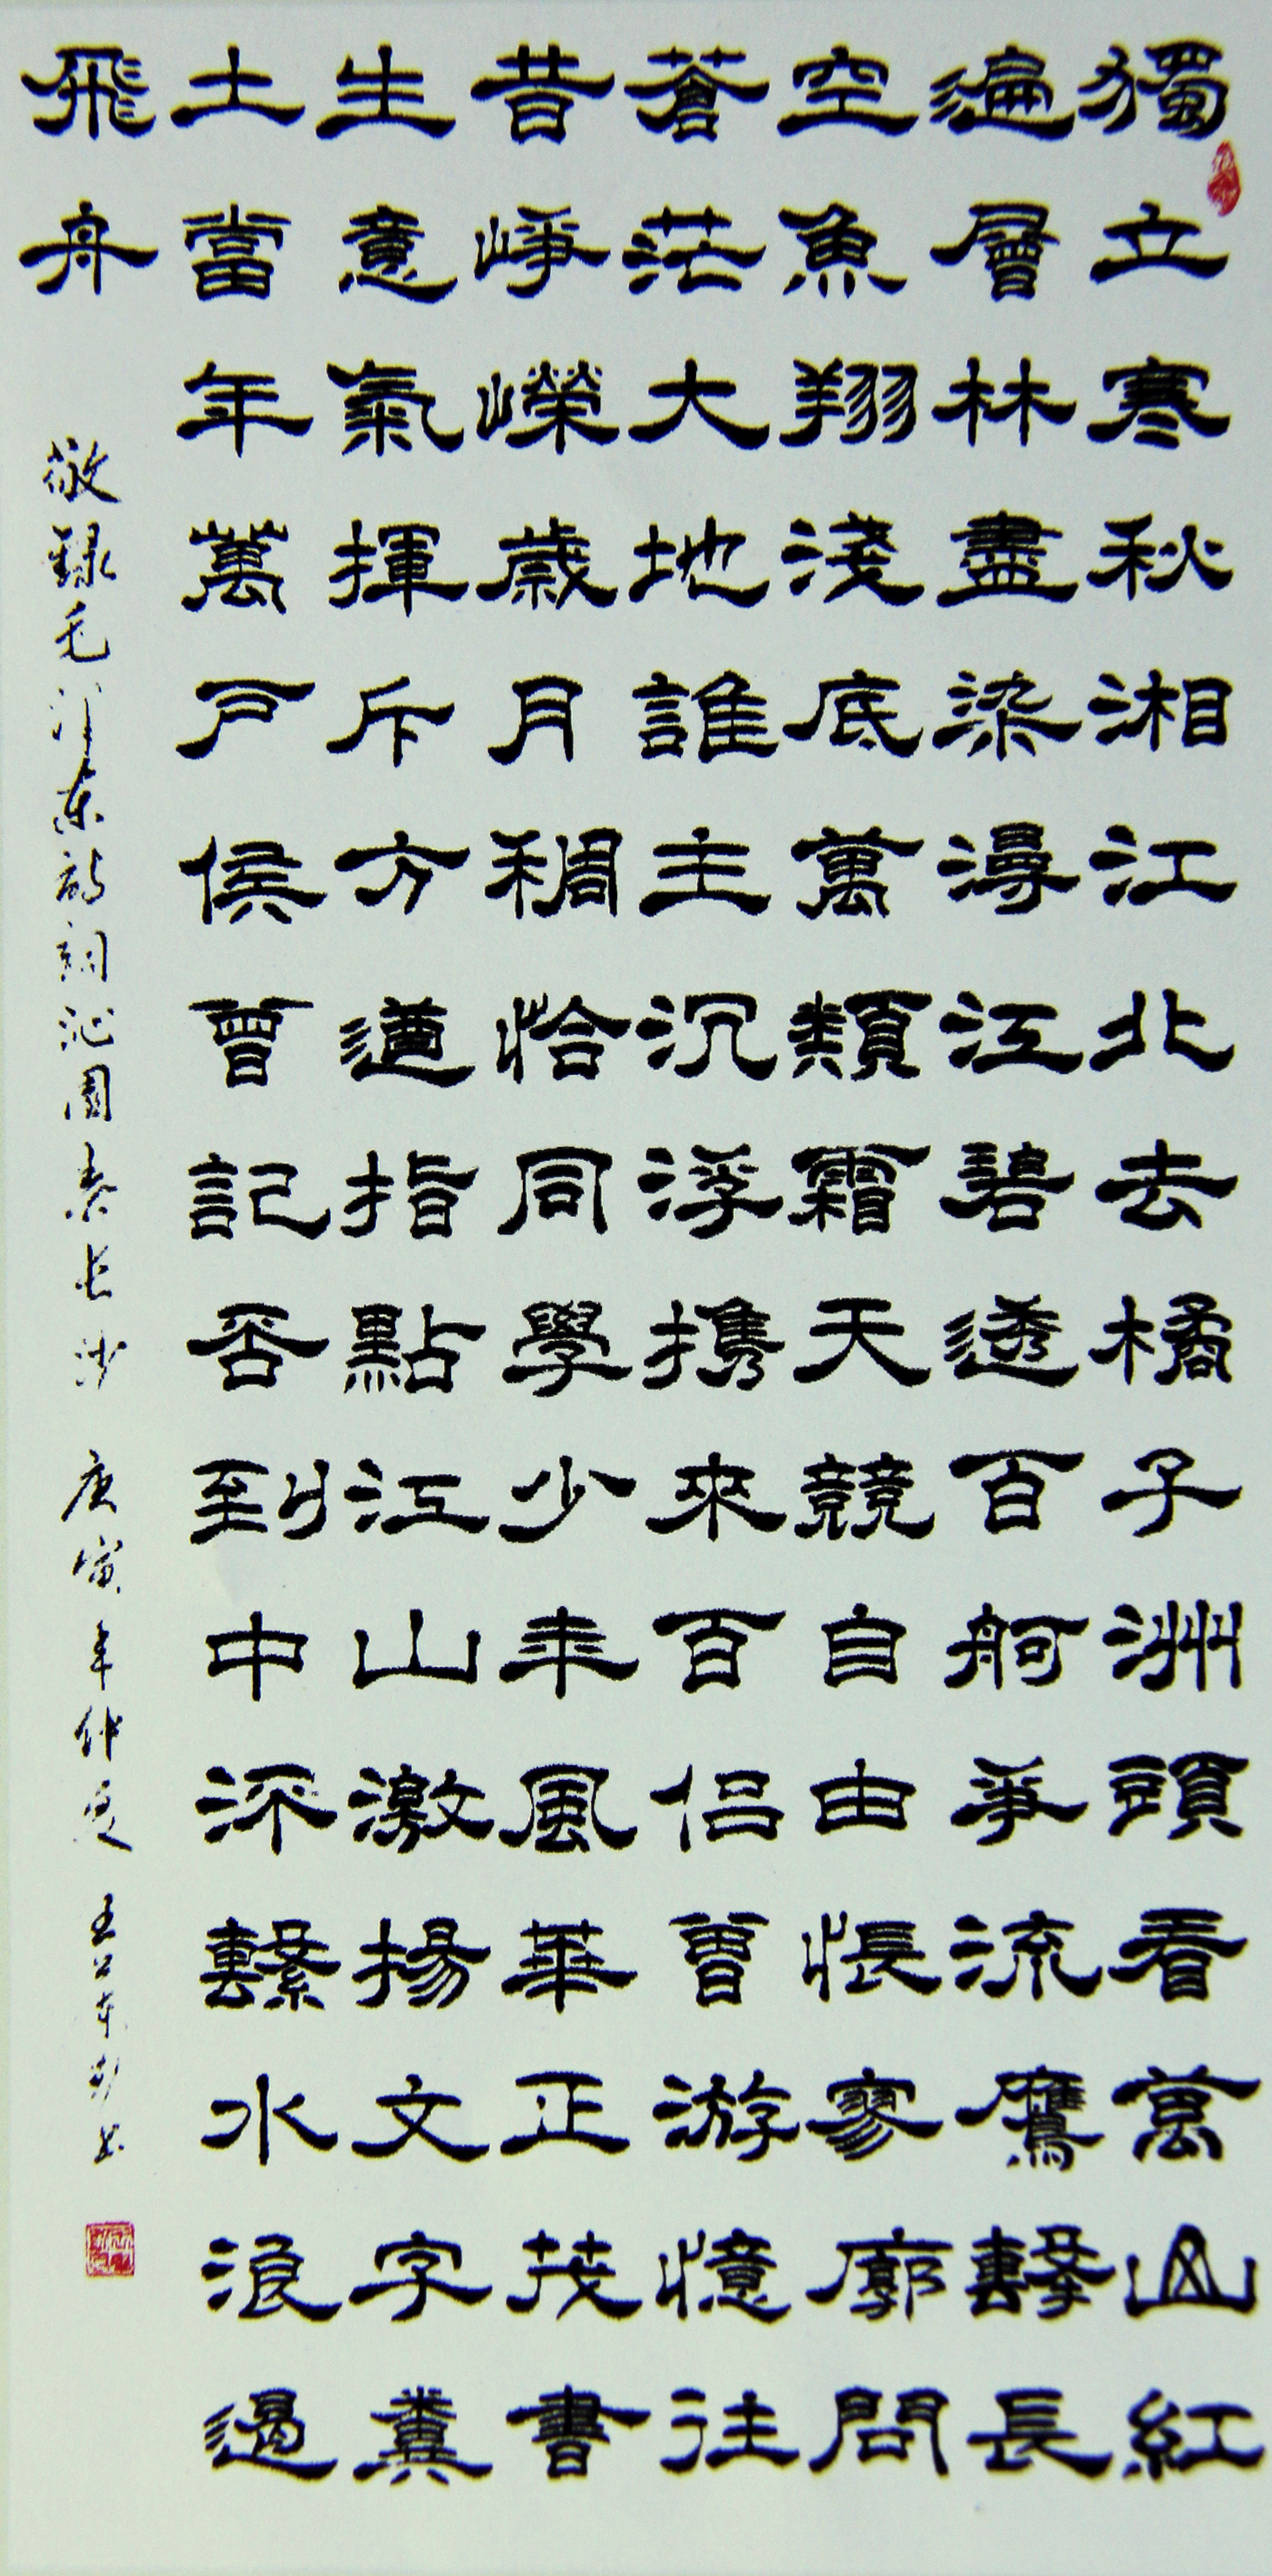 獨立寒秋湘江北去橘子洲頭看萬山紅
遍層林盡染漫江碧透百舸爭流鷹擊長
空魚翔淺底萬類霜天競自由悵寥廓問
蒼茫大地誰主沉浮携來百侶曾游憶往
昔崢嶸歲月稠恰同學少年風華正茂書
生意氣揮斥方遒指點江山激揚文字糞
土當年萬戶侯曾記否到中流擊水浪遏
飛舟
敬録毛泽东詩詞沁園春长沙 庚寅年仲夏 王